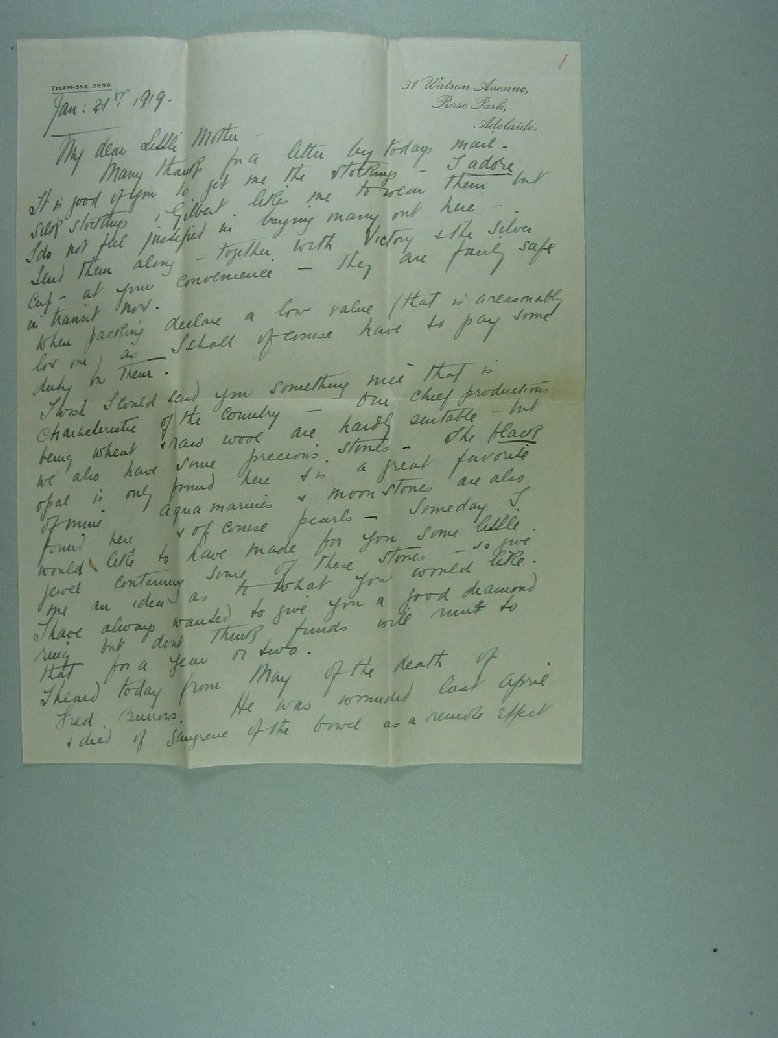 1
TELEPHONE 3855
31 Watson Avenue,
Rose Park,
Adelaide.
Jan: 21st 1919.
My dear Little Mother -
Many thanks for a letter by todays mail -
It is good of you to get me the stockings - I adore
silk stockings & Gilbert likes me to wear them but
I do not feel justified in buying many out here -
Send them along - together with Victory & the Silver
Cup - at your convenience - They are fairly safe
in transit now.
When packing declare a low value (that is a reasonably
low one) as I shall of course have to pay some
duty on them.
I wish I could send you something nice that is
characteristic of the country - Our chief productions
being wheat & raw wool are hardly suitable - but
we also have some precious stones - The black
opal is only found here & is a great favorite
of mine - aquamarines & moonstones are also
found here & of course pearls - Someday I
would like to have made for you some little
jewel containing some of these stones - so give
me an idea as to what you would like.
I have always wanted to give you a good diamond
ring but dont think funds will run to
that for a year or two.
I heard today from May of the death of
Fred Burrows. He was wounded last April
& died of gangrene of the bowel as a remote effect